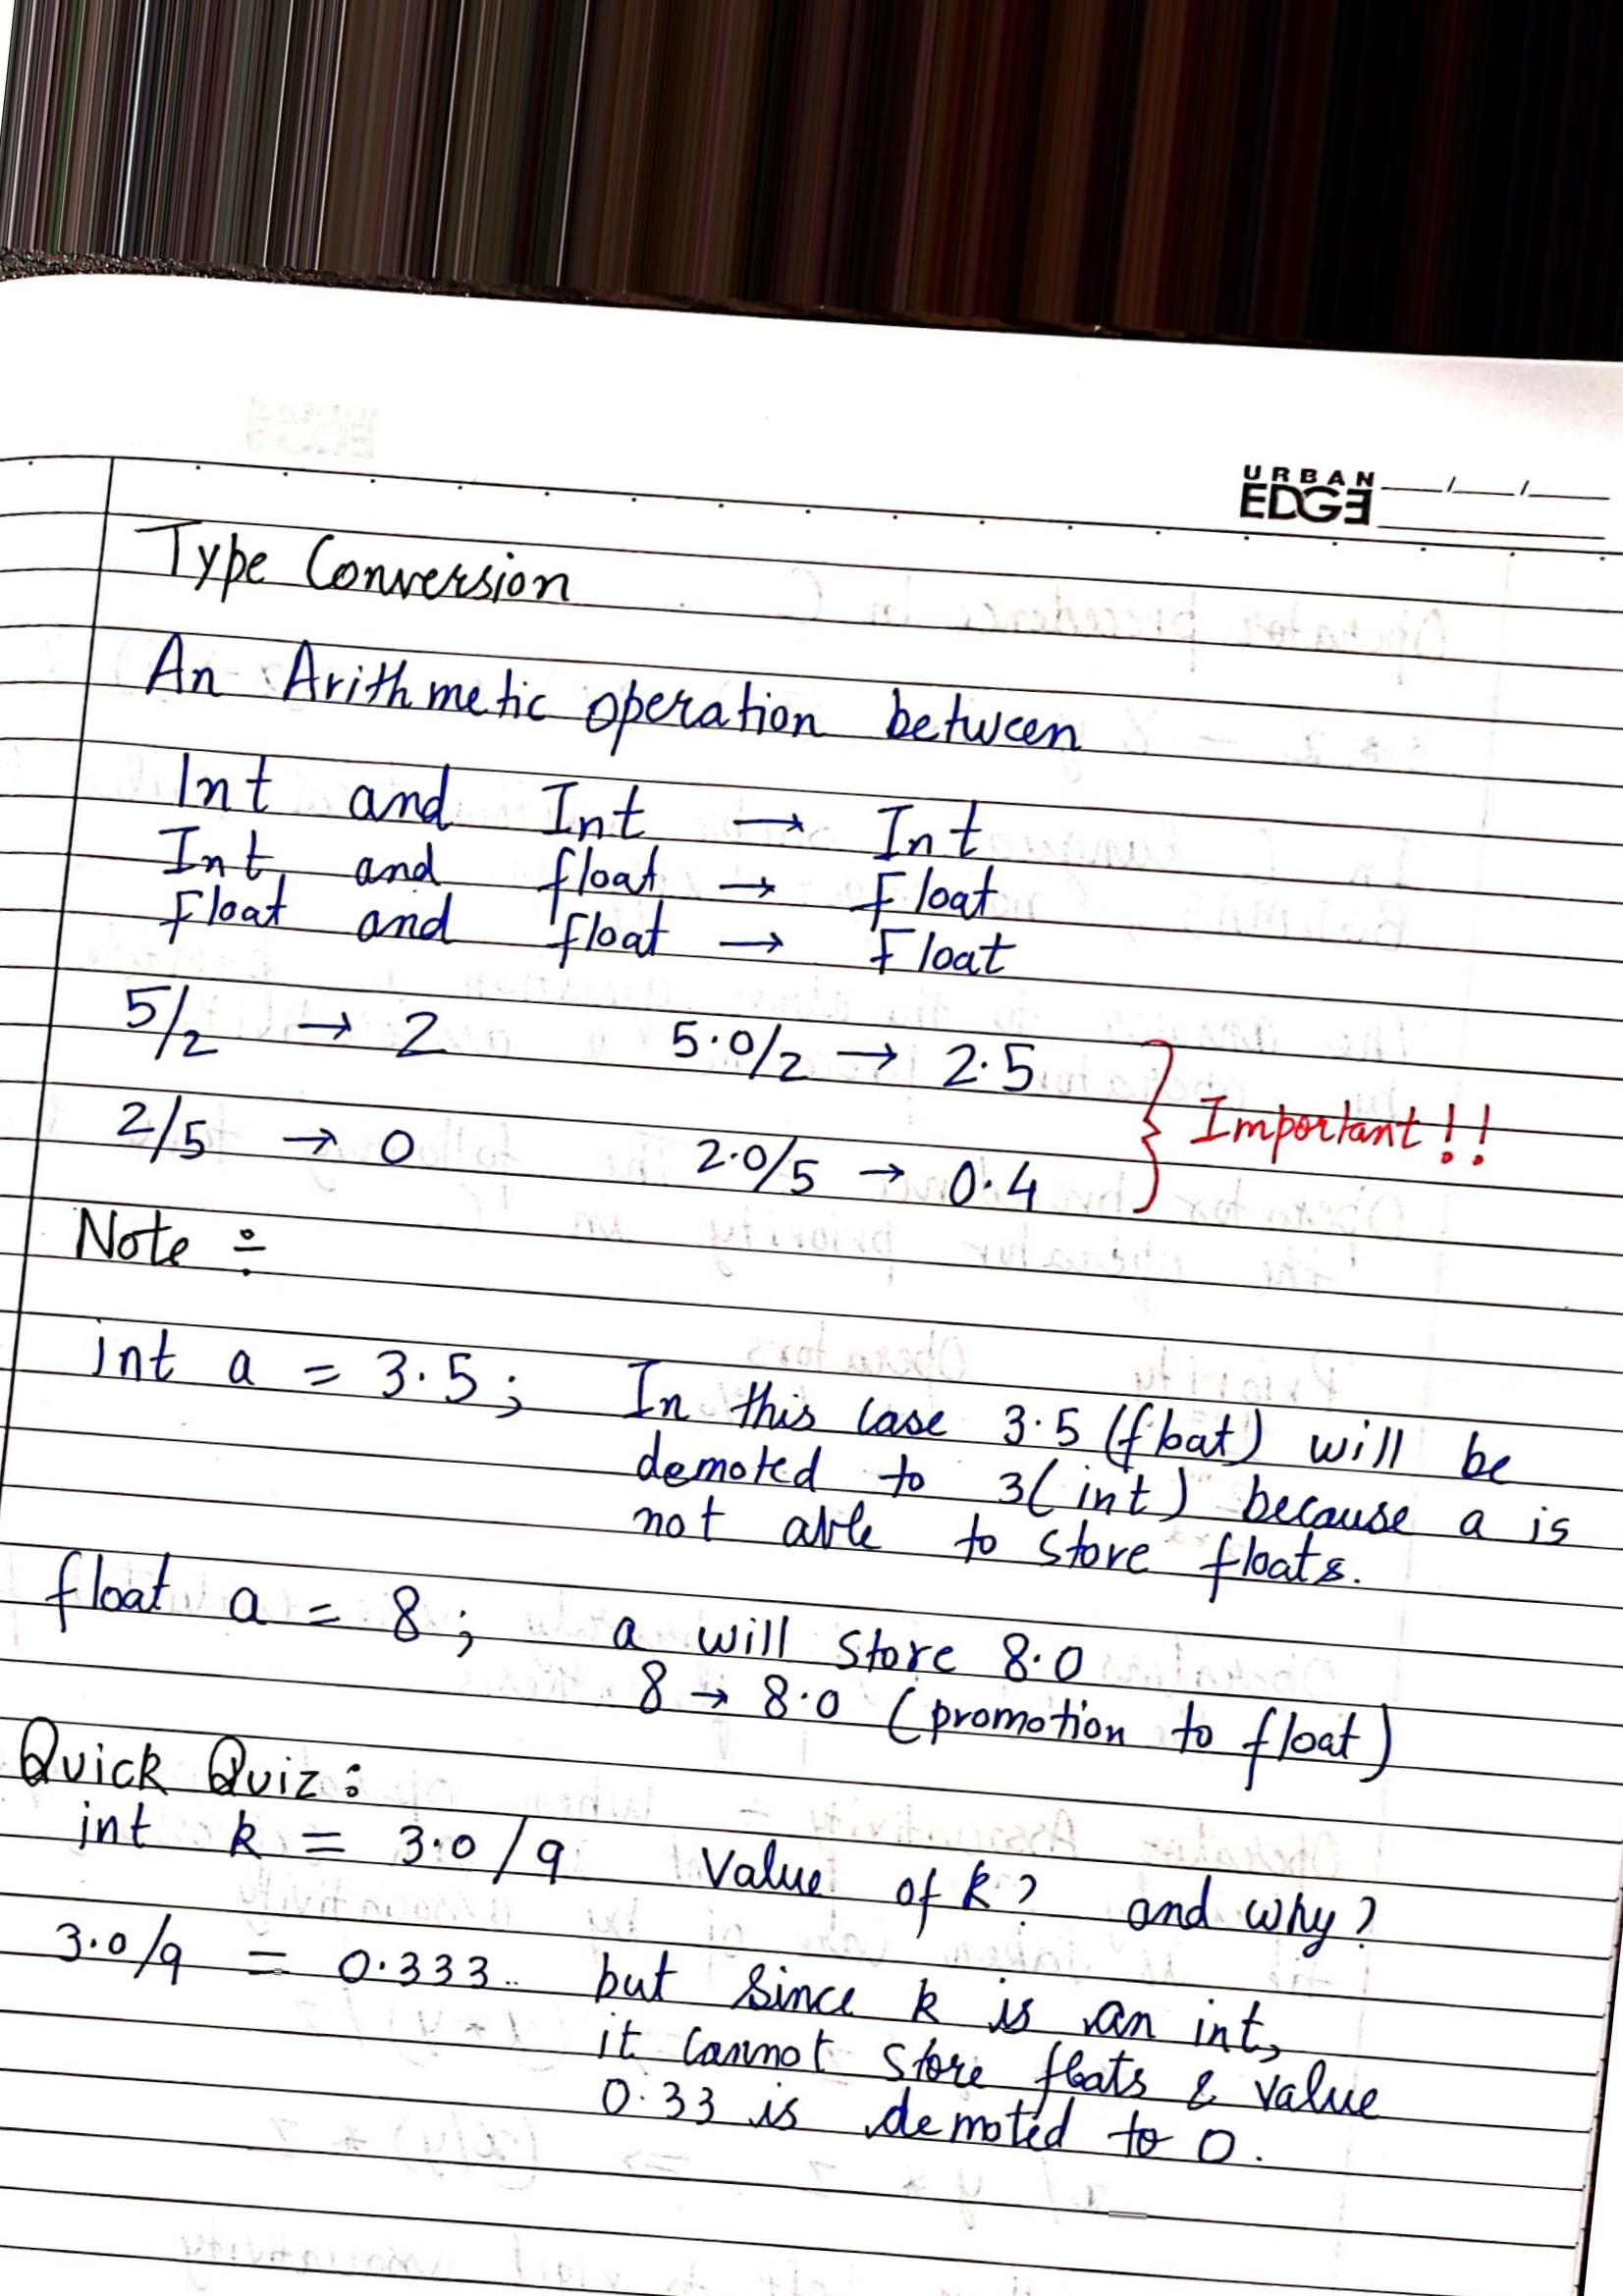 URBAN
EDGE
Type Conversion
An Arithmetic operation between
Int and Int → Int
Int and float → Float
Float and float → Float
5/2 → 2 5.0/2 → 2.5
2/5 → 0 2.0/5 → 0.4
Important!!
Note ÷
int a = 3.5; In this case 3.5 (float) will be
demoted to 3(int) because a is
not able to store floats.
float a = 8; a will store 8.0
8 → 8.0 (promotion to float)
Quick Quiz:
int k = 3.0/9 Value of k? and why?
3.0/9 = 0.333.. but since k is an int,
it cannot store floats & value
0.33 is demoted to 0.